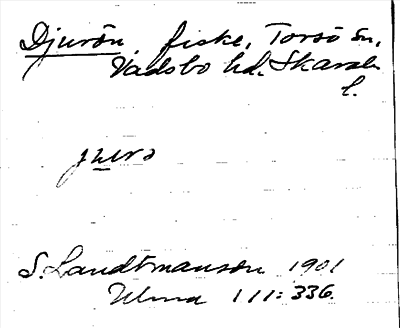 Djurön, fiske, Torsö sn,
Vadsbo hd. Skarab.
l.
juvo
S. Landtmanson 1901
Ulma 111:336.